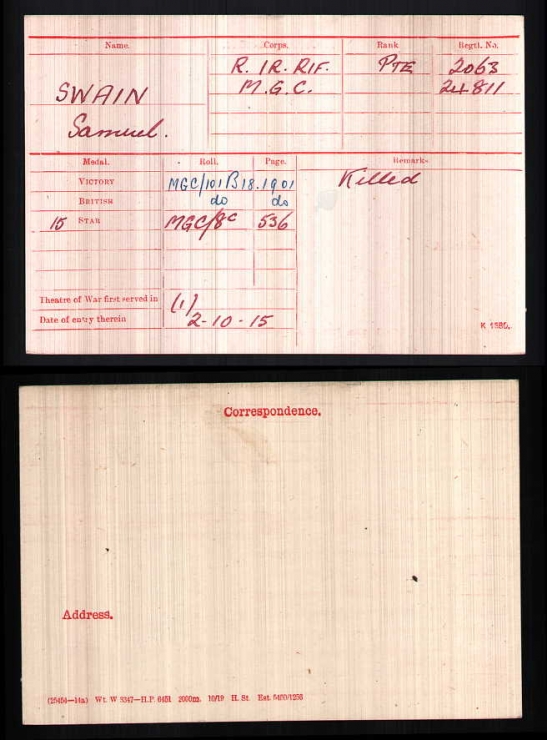 Name. Corps. Rank Regtl. No.
SWAIN R. IR. RIF. PTE 2063
Samuel. M.G.C. 24811
Medal. Roll. Page. Remarks
VICTORY MGC/101B18. 1901 Killed
BRITISH do do
15 STAR MGC/8C 536
Theatre of War first served in (1)
Date of entry therein 2-10-15
K 1380.
Correspondence.
Address.
Wt. W 3347—H.P. 6451 2000m. 10/19 H. St.